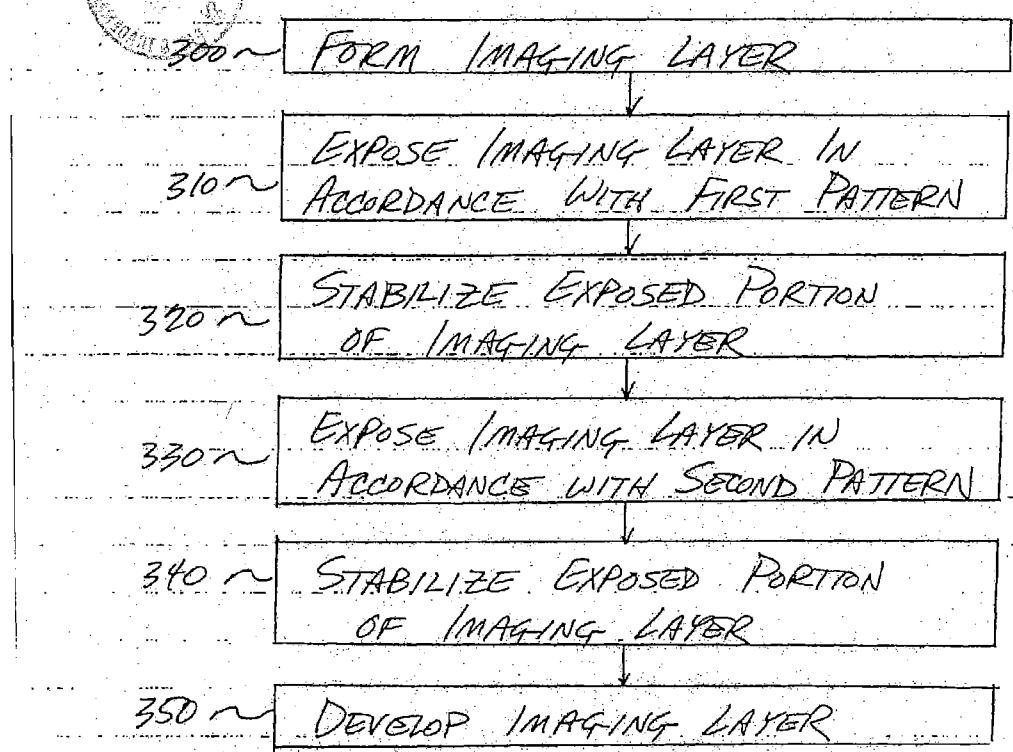 300 ~ FORM IMAGING LAYER
EXPOSE IMAGING LAYER IN
310 ~ ACCORDANCE WITH FIRST PATTERN
STABILIZE EXPOSED PORTION
320 ~ OF IMAGING LAYER
EXPOSE IMAGING LAYER IN
330 ~ ACCORDANCE WITH SECOND PATTERN
340 ~ STABILIZE EXPOSED PORTION
OF IMAGING LAYER
350 ~ DEVELOP IMAGING LAYER